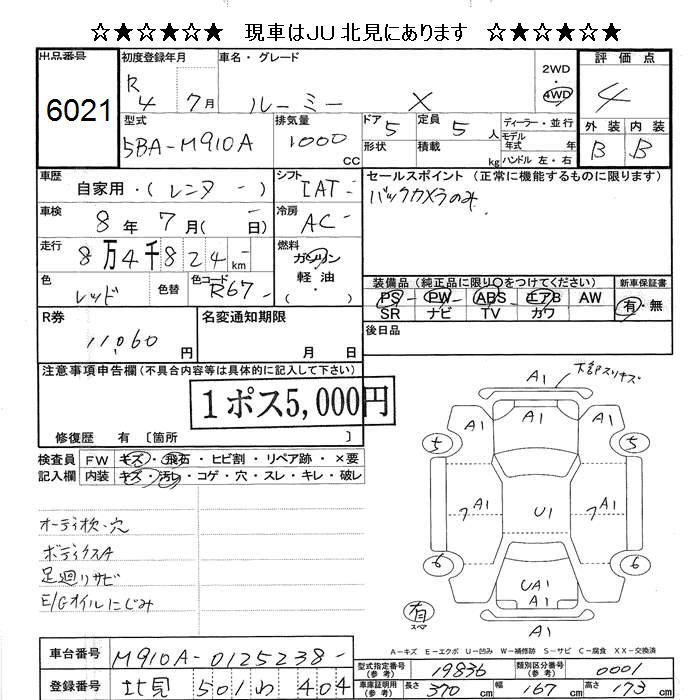 ☆★☆★☆★ 現車はJU北見にあります ☆★☆★☆★
出品番号
6021
初度登録年月
R4 7月
車名・グレード
ルーミー X
2WD
4WD
評価点
4
外装 内装
B B
型式
5BA-M910A
排気量
1000 CC
ドア 5
形状
定員 5人
積載 kg
ディーラー・並行
モデル年式 年
ハンドル 左・右
車歴
自家用・(レンタ-)
シフト
IAT-
セールスポイント (正常に機能するものに限ります)
バックカメラのみ
車検
8年7月(-日)
冷房
AC-
走行
8万4千824km-
燃料
ガソリン
軽油
( )
色
レッド
色替
色コード
R67-
装備品(純正品に限り〇をつけてください)
PS PW ABS エアB AW
SR ナビ TV カワ
新車保証書
有・無
R券
11,060円
名変通知期限
月 日
後日品
注意事項申告欄(不具合内容等は具体的に記入して下さい)
1ポス5,000円
修復歴 有〔箇所 〕
検査員
記入欄
FW キズ・飛石・ヒビ割・リペア跡・×要
内装 キズ・汚れ・コゲ・穴・スレ・キレ・破レ
オーディオ欠・穴
ボディクスA
足廻りサビ
E/Gオイルにじみ
A1 下部スリキズ
A1
5 A1 A1 5
7 A1 U1 7 A1
6 6
UA1
A1
有
スペア
A1
A-キズ E-エクボ U-凹み W-補修跡 S-サビ C-腐食 XX-交換済
車台番号
M910A-0125238-
登録番号
北見 501 わ 404
型式指定番号(参考)
19836
類別区分番号(参考)
0001
車庫証明用(参考)
長さ 370cm 幅 167cm 高さ 173cm